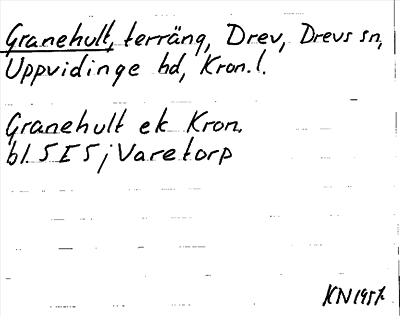 Granehult, terräng, Drev, Drevs sn,
Uppvidinge hd, Kron. l.
Granehult ek Kron.
bl. 5 E 5 j Varetorp
KN 1957.